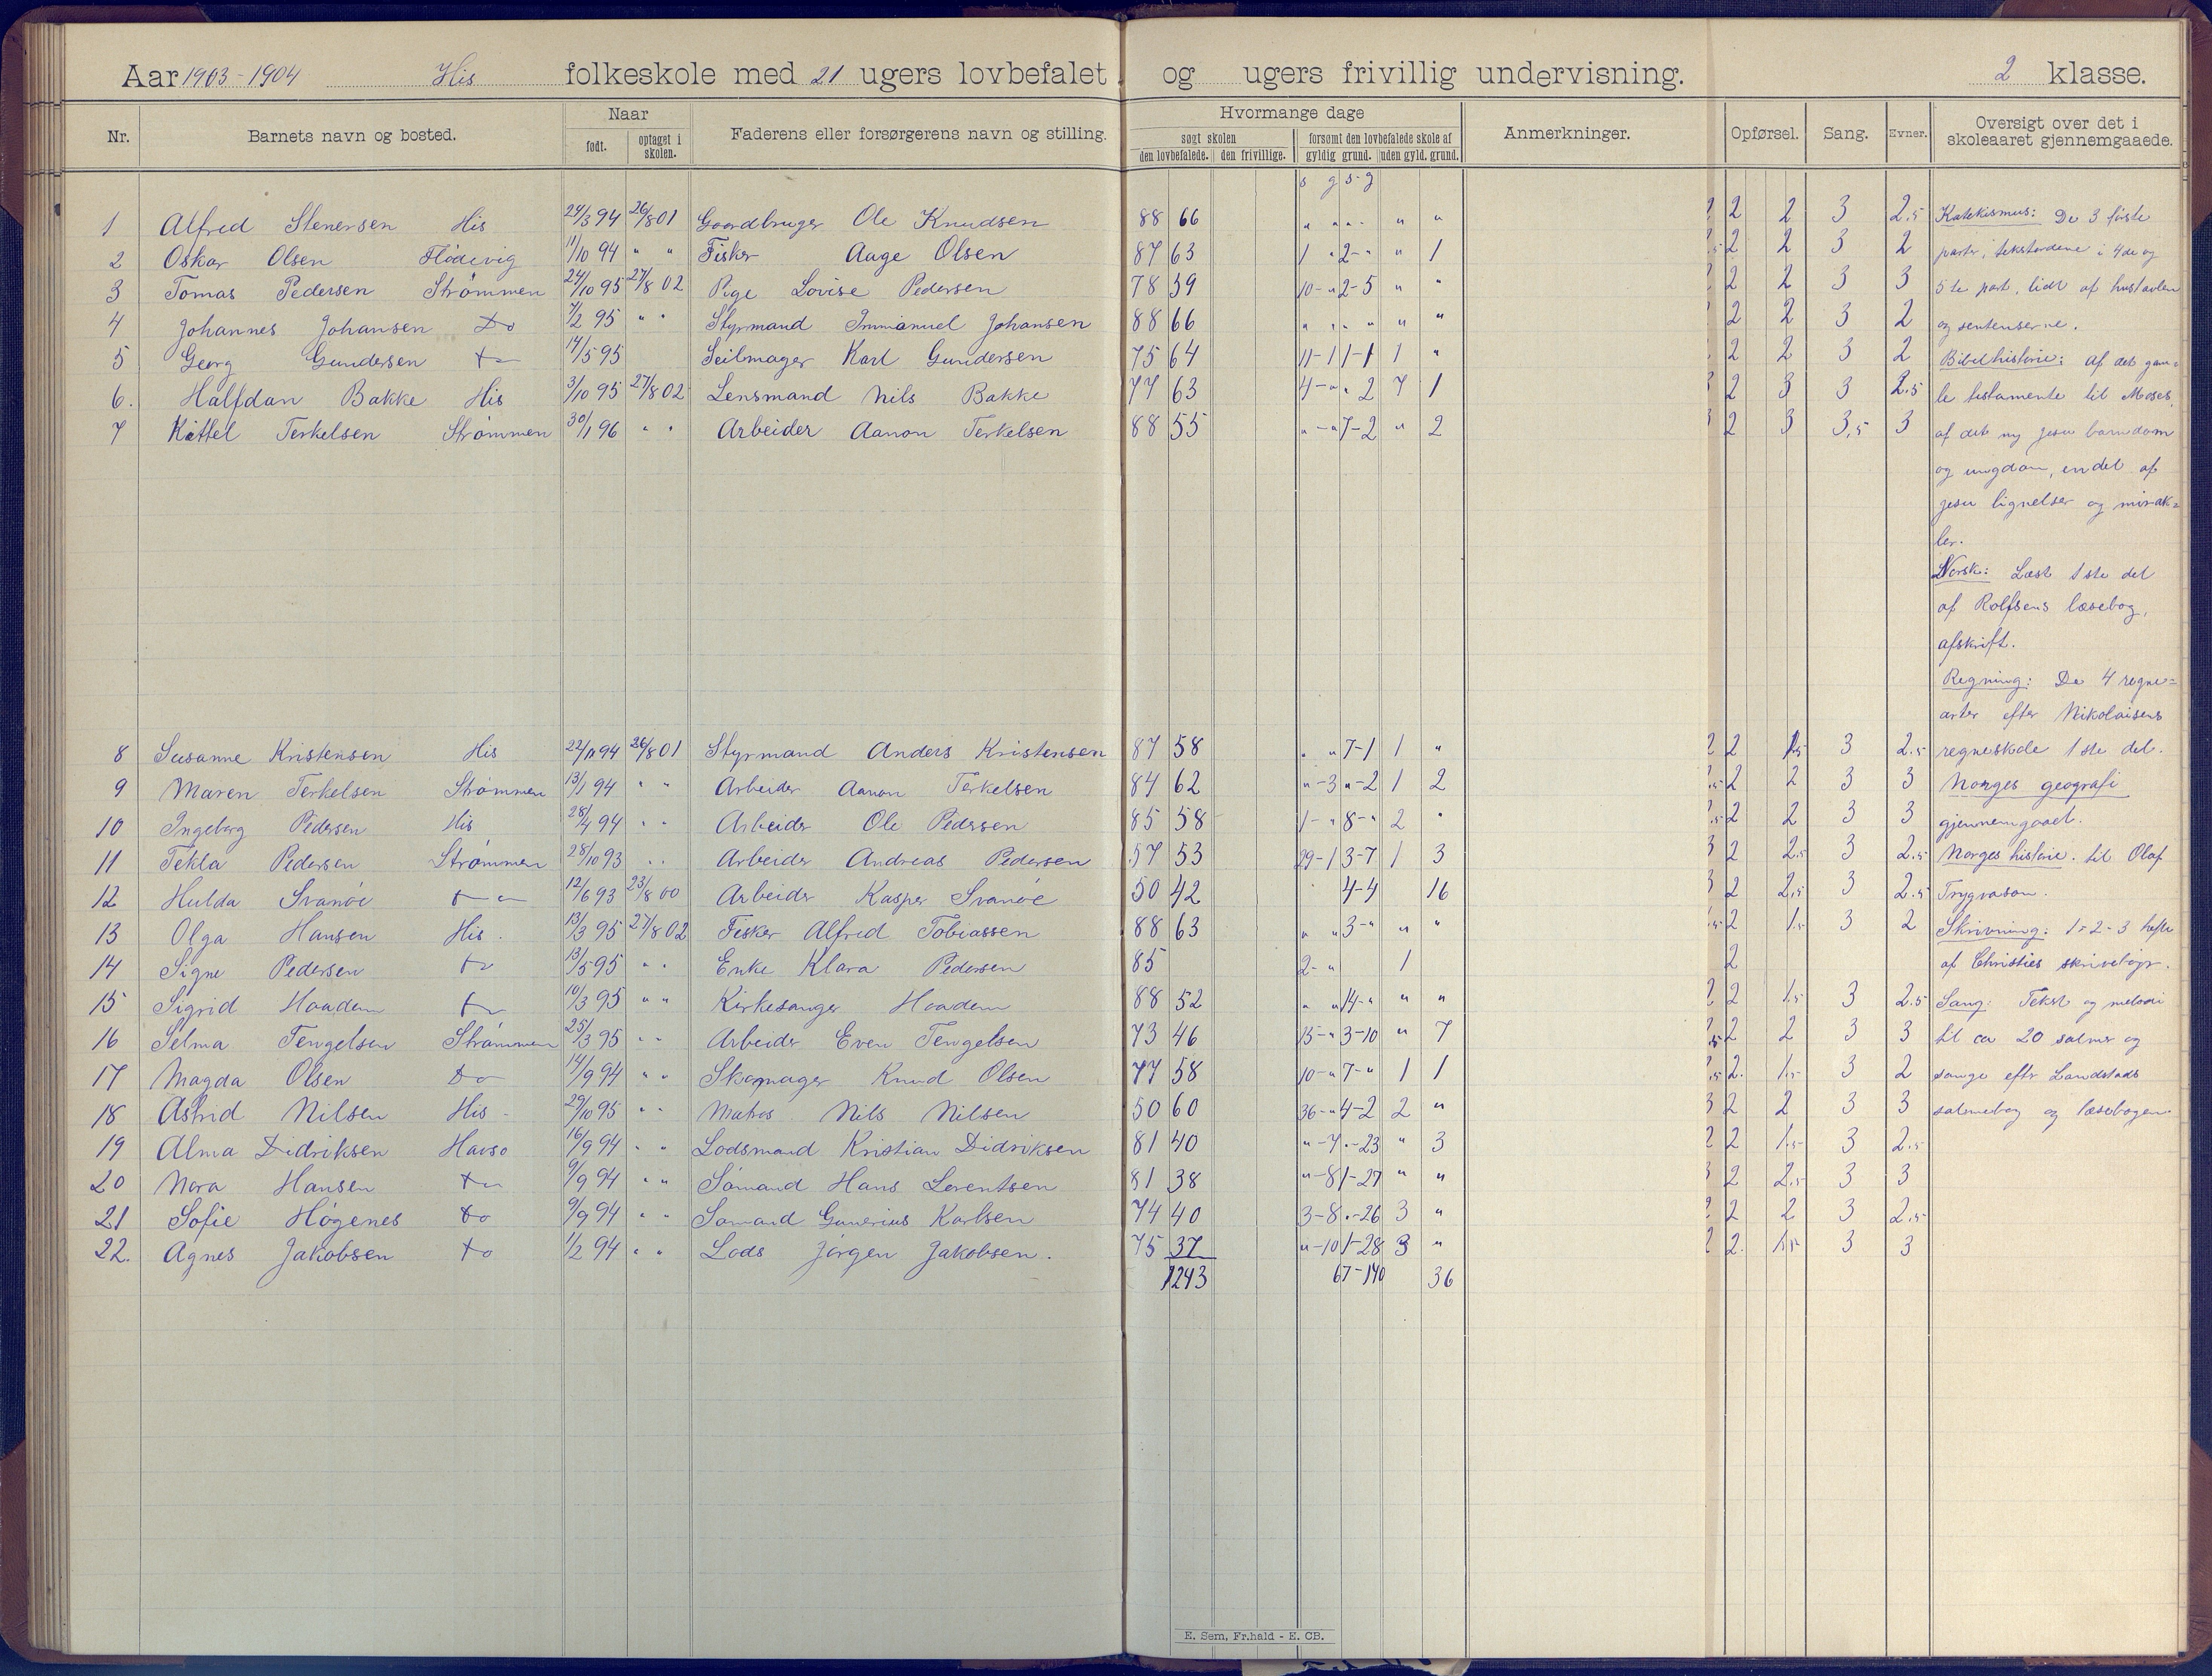 Aar 1903-1904 His folkeskole med 21 ugers lovbefalet og ugers frivillig undervisning. 2 klasse.
Nr. Barnets navn og bosted. Naar født. optaget i skolen. Faderens eller forsørgerens navn og stilling. Hvormange dage søgt skolen den lovbefalede. den frivillige. forsømt den lovbefalede skole af gyldig grund. uden gyld. grund. Anmerkninger. Opførsel. Sang. Evner. Oversigt over det i skoleaaret gjennemgaaede.
s g s-g
1 Alfred Stenersen His 24/3 94 26/8 01 Gaardbruger Ole Knudsen 88 66 " " " " " 2 2 3 2.5 Katekismus: De 3 første
2 Oskar Olsen Flödevig 11/10 94 " " Fisker Aage Olsen 87 63 1 " 2-" " 1 2 2 3 2 parter, tekstordene i 4de og
3 Tomas Pedersen Strømmen 24/10 95 27/8 02 Pige Lovise Pedersen 78 59 10-" 2-5 " " 2 2 3 3 5te part, lidt af hustavlen
4 Johannes Johansen Do 7/2 95 " " Styrmand Immanuel Johansen 88 66 " " " " " " 2 2 3 2 og sentenserne.
5 Georg Gundersen 14/5 95 Seilmager Karl Gundersen 75 64 11-1 1-1 1 " 2 2 3 2 Bibelhistorie: Af det gam=
6. Halfdan Bakke His 3/10 95 27/8 02 Lensmand Nils Bakke 77 63 4-" " 2 7 1 2 3 3 2.5 le testamente til Moses,
7 Kittel Terkelsen Strømmen 30/1 96 " " Arbeider Aanon Terkelsen 88 55 "-" 7-2 " 2 2 3 3,5 3 af det ny Jesu barndom
og ungdom, en del af
Jesu lignelser og mirak=
ler.
Norsk: Læst 1ste del
af Rolfsens læsebog,
afskrift.
Regning: De 4 regne=
arter efter Nikolaisens
8 Susanne Kristensen His 22/11 94 26/8 01 Styrmand Anders Kristensen 87 58 " " 7-1 1 " 2 1.5 3 2.5 regneskole 1ste del.
9 Maren Terkelsen Strømmen 13/1 94 " " Arbeider Aanon Terkelsen 84 62 "-3 "-2 1 2 2 2 3 3 Norges geografi
10 Ingeborg Pedersen His 28/4 94 " " Arbeider Ole Pedersen 85 58 1-" 8-" 2 " 2 2 3 3 gjennemgaaet.
11 Tekla Pedersen Strømmen 28/10 93 " " Arbeider Andreas Pedersen 57 53 29-1 3-7 1 3 2 2.5 3 2.5 Norges historie. til Olaf
12 Hulda Svanöe 12/6 93 23/8 00 Arbeider Kasper Svanöe 50 42 4-4 16 2 2.5 3 2.5 Trygvason.
13 Olga Hansen His. 13/3 95 27/8 02 Fisker Alfred Tobiassen 88 63 " " 3-" " " 2 1.5 3 2 Skrivning: 1-2-3 hefte
14 Signe Pedersen 13/5 95 " " Enke Klara Pedersen 85 2-" 1 2 af Christies skrivebøger.
15 Sigrid Haadem 10/3 95 " " Kirkesanger Haadem 88 52 " " 14-" " " 2 1.5 3 2.5 Sang: Tekst og melodi
16 Selma Tengelsen Strømmen 25/3 95 " " Arbeider Even Tengelsen 73 46 15-" 3-10 " 7 2 2 3 3 til ca 20 salmer og
17 Magda Olsen Do 14/9 94 " " Skomager Knud Olsen 77 58 10-" 7-" 1 1 2. 1.5 3 2 sange efter Landstads
18 Astrid Nilsen His 29/10 95 " " Matros Nils Nilsen 50 60 36-" 4-2 2 " 2 2 3 3 salmebog og læsebogen.
19 Alma Didriksen Havsö 16/9 94 " " Lodsmand Kristian Didriksen 81 40 "-7 "-23 " 3 2 1.5 3 2.5
20 Nora Hansen 9/9 94 " " Sömand Hans Lorentsen 81 38 "-8 1-27 " " 2 2.5 3 3
21 Sofie Högenes Do 9/9 94 " " Sömand Gunerius Karlsen 74 40 3-8 "-26 3 " 2 2 3 2.5
22. Agnes Jakobsen Do 1/2 94 " " Lods Jörgen Jakobsen. 75 37 "-10 1-28 3 " 2. 1.5 3 3
1243 67-140 36
E. Sem, Fr.hald - E. CB.